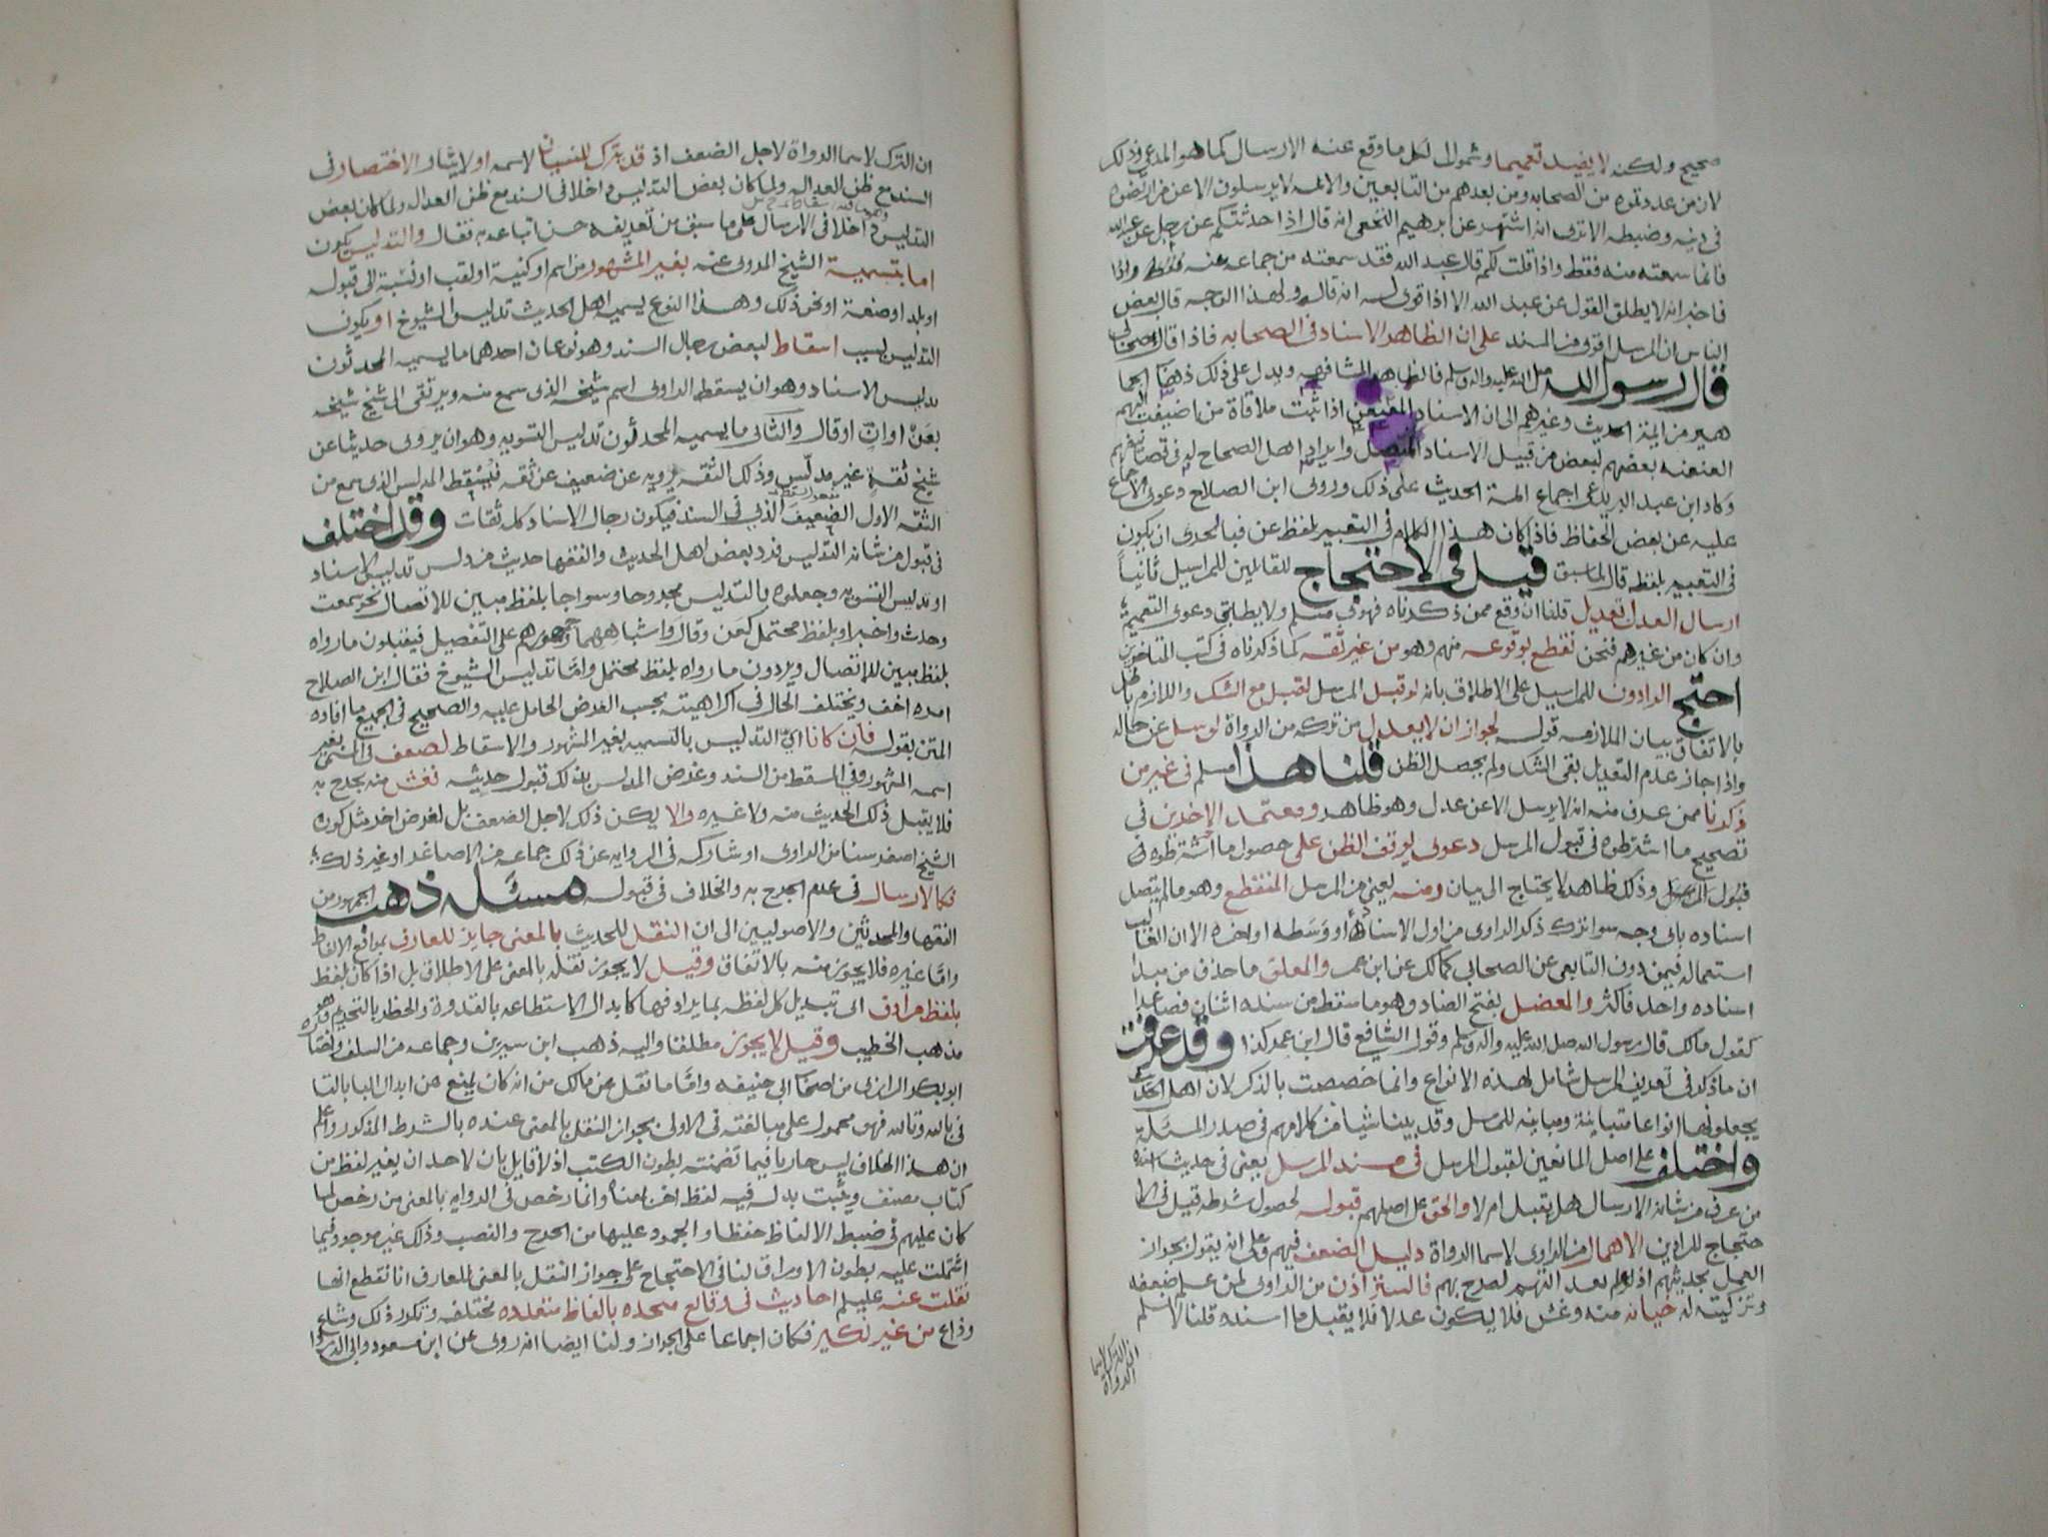 صحيح ولكنه لا يفيد تعميما وشمولا لكل ما وقع عنه الارسال كما هو المدعى وذلك
لان من عد وتموه من الصحابه ومن بعدهم من التابعين والائمه لا يرسلون الا عن من ارتضوه
في دينه وضبطه الا ترى انه اشتهر عن ابرهيم النخعي انه قال اذا حدثتكم عن رجل عن عبدالله
فانما سمعته منه فقط واذا قلت لكم قال عبد الله فقد سمعته من جماعه عنه فقط واذا
فاخبر انه لا يطلق القول عن عبد الله الا اذا قوي له انه قاله ولهذا الوجه قال بعض
الناس ان المرسل اقوى من المسند على ان الظاهر الاسناد في الصحابه فاذا قال الصحابي
قال رسول الله صلى الله عليه واله وسلم فالظاهر المشافهه ويدل على ذلك ذهاب الجما
هير من ائمة الحديث وغيرهم الى ان الاسناد المعنعن اذا ثبت ملاقاة من اضيفت اليهم
العنعنه بعضهم لبعض من قبيل الاسناد المتصل وايراد اهل الصحاح له في تصانيفهم
وكاد ابن عبد البر يدعي اجماع ائمة الحديث على ذلك وروى ابن الصلاح دعوى الاجماع
عليه عن بعض الحفاظ فاذا كان هذا الكلام في التعبير بلفظ عن فبالحري ان يكون
في التعبير بلفظ قال لما سبق قيل في الاحتجاج للقائلين للمراسيل ثانياً
ارسال العدل تعديل قلنا ان وقع ممن ذكرناه فهو مسلم ولا يطابق دعوى التعميم
وان كان من غيرهم فنحن نقطع بوقوعه منهم وهو من غير ثقه كما ذكرناه في كتب المتاخرين
احتج الرادون للمراسيل على الاطلاق بانه لو قبل المرسل لقبل مع الشك واللازم باطل
بالاتفاق بيان الملازمه قوله لجواز ان لا يعدل من تركه من الرواة لو سئل عن حاله
واذا جاز عدم التعديل بقى الشك ولم يحصل الظن قلنا هذا مسلم في غير من
ذكرنا ممن عرف منه انه لا يرسل الا عن عدل وهو ظاهر ومعتمد الاخرين في
تصحيح ما اشترطوه في قبول المرسل دعوى توقف الظن على حصول ما اشترطوه في
قبول المرسل وذلك ظاهر لا يحتاج الى بيان ومنه يعني من المرسل المنقطع وهو ما لم يتصل
اسناده باي وجه سوا ترك ذكر الراوي من اول الاسناد او وسطه او اخره الا ان الغالب
استعماله فيمن دون التابعي عن الصحابي كمالك عن ابن عمر والمعلق ما حذف من مبدا
اسناده واحد فاكثر والمعضل بفتح الضاد وهو ما سقط من سنده اثنان فصاعدا
كقول مالك قال رسول الله صلى الله عليه واله وسلم وقول الشافعي قال ابن عمر كذا وقد عرفت
ان ما ذكر في تعريف المرسل شامل لهذه الانواع وانما خصصت بالذكر لان اهل الحديث
يجعلونها انواعا متباينة ومباينه للمرسل وقد بينا شيا من كلامهم في صدر المسئلة
واختلف على اصل المانعين لقبول المرسل في مسند المرسل يعني في حديث اسنده
من عرف من شانه الارسال هل يقبل ام لا والحق على اصلهم قبوله لحصول شرطه قيل في الا
حتجاج للرادين الاهمال من الراوي لاسما الرواة دليل الضعف فيهم وعلى انه يقول بجواز
العمل بحديثهم اذ لو لم يعد التهم لصرح بهم فالستر اذن من الراوي لمن علم ضعفه
وتزكيته له خيانه منه وغش فلا يكون عدلا فلا يقبل ما اسنده قلنا لا نسلم
ان الترك لاسما
الرواة
ان الترك لاسما الرواة لاجل الضعف اذ قد يترك لنسيان لاسمه او لايثار الاختصار في
السند مع ظن العداله ولما كان بعض التدليس داخلا في السند مع ظن العداله ولما كان بعض
التدليس داخلا في الارسال على ما سبق من تعريفه حسن اتباعه به فقال والتدليس يكون
اما بتسمية الشيخ المروي عنه بغير المشهور من اسم او كنية او لقب او نسبة الى قبوله
او بلد او صنعة او نحو ذلك وهذا النوع يسميه اهل الحديث تدليس الشيوخ او يكون
التدليس بسبب اسقاط لبعض رجال السند وهو نوعان احدهما ما يسميه المحدثون
تدليس الاسناد وهو ان يسقط الراوي اسم شيخه الذي سمع منه ويرتقى الى شيخ شيخه
بعن او ان او قال والثاني ما يسميه المحدثون تدليس التسويه وهو ان يروى حديثا عن
شيخ ثقة غير مدلس وذلك الثقه يرويه عن ضعيف عن ثقه فيسقط المدلس الذي سمع من
الثقه الاول الضعيف الذي في السند فيكون رجال الاسناد كله ثقات وقد اختلف
في قبول من شانه التدليس فرد بعض اهل الحديث والفقها حديث من دلس تدليس الاسناد
او تدليس التسويه وجعلوه بالتدليس مجروحا وسوا جا بلفظ مبين للاتصال نحو سمعت
وحدث واخبر او بلفظ محتمل كعن وقال واشباههما وجمهورهم على التفصيل فيقبلون ما رواه
بلفظ مبين للاتصال ويردون ما رواه بلفظ محتمل واما تدليس الشيوخ فقال ابن الصلاح
امره اخف ويختلف الحال في اكراهيته بحسب الغرض الحامل عليه والصحيح في الجميع ما افاده
المتن بقوله فان كانا اي التدليس بالتسميه بغير المشهور والاسقاط لضعف في المسمى بغير
اسمه المشهور وفي المسقط من السند وغرض المدلس بذلك قبول حديثه فغش منه يجرح به
فلا يقبل ذلك الحديث منه ولا غيره والا يكن ذلك لاجل الضعف بل لغرض اخر مثل كون
الشيخ اصغر سنا من الراوي او شاركه في الروايه عن ذلك جماعه من الاصاغر او غير ذلك
فكالارسال في عدم الجرح به والخلاف في قبوله مسئله ذهب الجمهور من
الفقها والمحدثين والاصوليين الى ان النقل للحديث بالمعنى جايز للعارف بمواقع الالفاظ
واما غيره فلا يجوز منه بالاتفاق وقيل لا يجوز نقله بالمعنى على الاطلاق بل اذا كان بلفظ
بلفظ مرادف اى تبديل كل لفظه بما يرادفها كابدال الاستطاعه بالقدرة والحظر بالتحريم وهو
مذهب الخطيب وقيل لا يجوز مطلقا واليه ذهب ابن سيرين وجماعه من السلف واختاره
ابو بكر الرازي من اصحاب ابي حنيفه واما ما نقل عن مالك من انه كان يمنع من ابدال البا بالتا
في بالله وتالله فهو محمول على مبالغته في الاولى بجواز النقل بالمعنى عنده بالشرط المذكور واعلم
ان هذا الخلاف ليس جاريا فيما تضمنته بطون الكتب اذ لا قايل بان لاحد ان يغير لفظ من
كتاب مصنف ويثبت بدله فيه لفظ اخر بمعناه وانما رخص في الروايه بالمعنى من رخص لما
كان عليهم في ضبط الالفاظ حفظا والجمود عليها من الحرج والنصب وذلك غير موجود فيما
اشتملت عليه بطون الاوراق لنا في الاحتجاج على جواز النقل بالمعنى للعارف انا نقطع انها
نقلت عنه عليلم احاديث في وقائع متحده بالفاظ متعدده مختلفه وتكرر ذلك وشاع
وذاع من غير نكير فكان اجماعا على الجواز ولنا ايضا انه روى عن ابن مسعود وابي الدردا